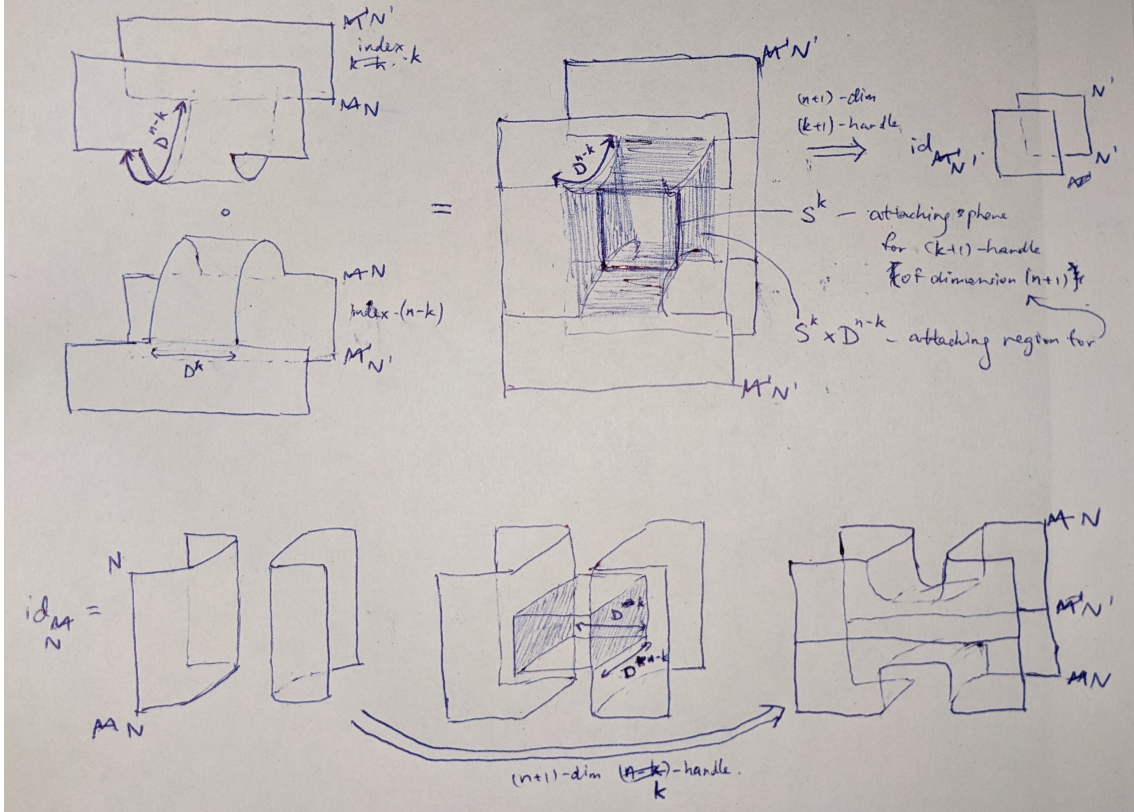 N'
index
k
N
D^{n-k}
∘
N
index-(n-k)
D^k
N'
=
N'
D^{n-k}
N'
(n+1)-dim
(k+1)-handle
⟹
id N'
N'
N'
S^k - attaching sphere
for (k+1)-handle
of dimension (n+1)
S^k × D^{n-k} - attaching region for
id N =
N
N
D^{n-k}
N
N'
N
(n+1)-dim k-handle.